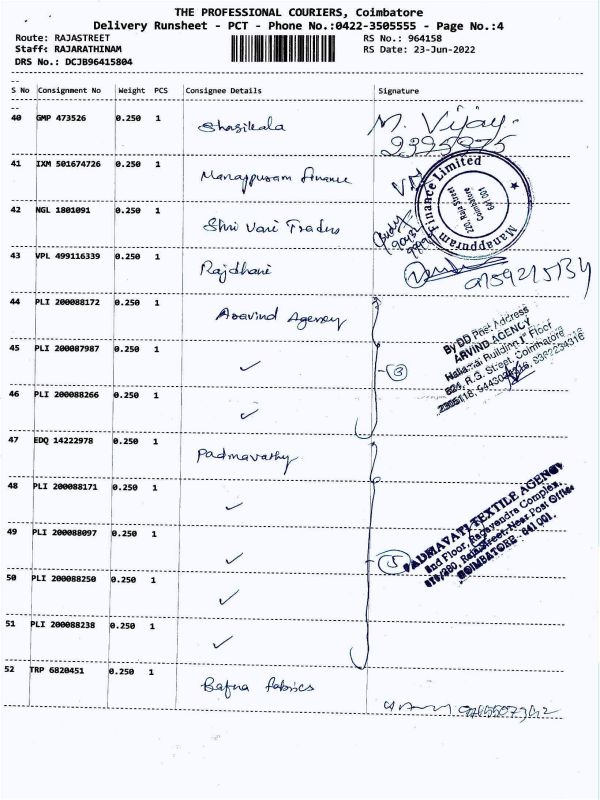 THE PROFESSIONAL COURIERS, Coimbatore
Delivery Runsheet - PCT - Phone No.:0422-3505555 - Page No.:4
Route: RAJASTREET RS No.: 964158
Staff: RAJARATHINAM RS Date: 23-Jun-2022
DRS No.: DCJB96415804
S No Consignment No Weight PCS Consignee Details Signature
40 GMP 473526 0.250 1 Shasikala M. Vijay.
41 IXM 501674726 0.250 1 Manappuram finance
Manappuram Finance Limited
220, Raja Street
Coimbatore
641 001
42 NGL 1801091 0.250 1 Shri Vari Traders
43 VPL 499116339 0.250 1 Rajdhani
44 PLI 200088172 0.250 1 Aravind Agency
45 PLI 200087987 0.250 1 ✓ 3
By DD Post Address
ARVIND AGENCY
46 PLI 200088266 0.250 1 ✓
47 EDQ 14222978 0.250 1 Padmavathy
48 PLI 200088171 0.250 1 ✓
49 PLI 200088097 0.250 1 ✓ 5
PADMAVATI TEXTILE AGENCY
2nd Floor, Ragavendra Complex,
Raja Street, Near Post Office
COIMBATORE - 641 001.
50 PLI 200088250 0.250 1 ✓
51 PLI 200088238 0.250 1 ✓
52 TRP 6820451 0.250 1 Bafna fabrics